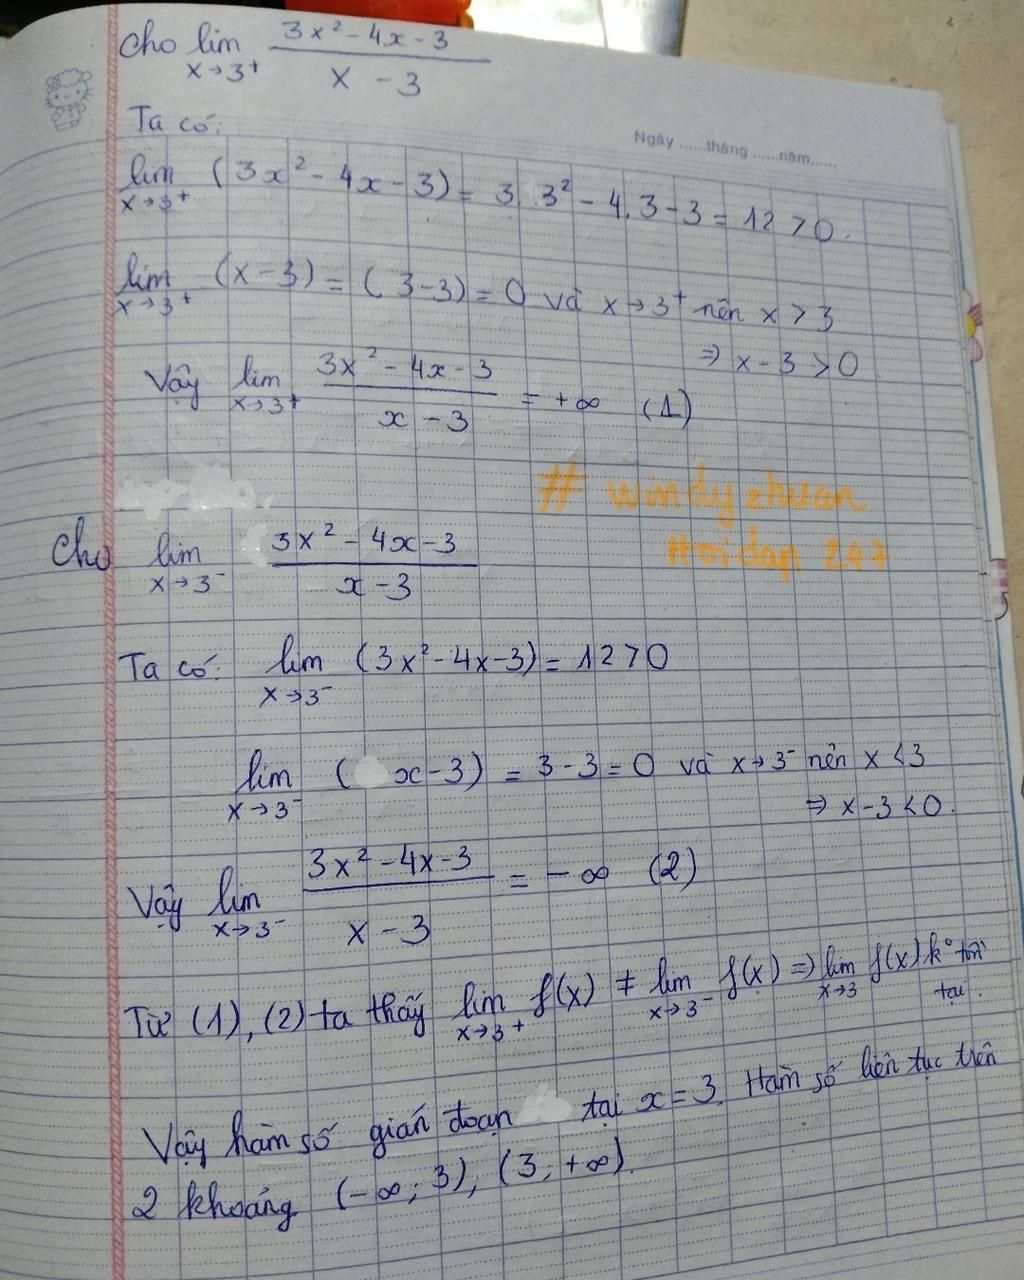 Cho lim 3x² - 4x - 3
x → 3⁺ x - 3
Ta có:
Ngày ......tháng ......năm......
lim (3x² - 4x - 3) = 3. 3² - 4. 3 - 3 = 12 > 0.
x → 3⁺
lim (x - 3) = (3 - 3) = 0 và x → 3⁺ nên x > 3
x → 3⁺
⇒ x - 3 > 0
Vậy lim 3x² - 4x - 3 = +∞ (1)
x → 3⁺ x - 3
# windyzhuan
Hoidap 247
Cho lim 3x² - 4x - 3
x → 3⁻ x - 3
Ta có: lim (3x² - 4x - 3) = 12 > 0
x → 3⁻
lim ( x - 3) = 3 - 3 = 0 và x → 3⁻ nên x < 3
x → 3⁻
⇒ x - 3 < 0.
Vậy lim 3x² - 4x - 3 = -∞ (2)
x → 3⁻ x - 3
Từ (1), (2) ta thấy lim f(x) ≠ lim f(x) ⇒ lim f(x) k° tồn
x → 3⁺ x → 3⁻ x → 3 tại.
Vậy hàm số gián đoạn tại x = 3. Hàm số liên tục trên
2 khoảng (-∞; 3), (3; +∞).